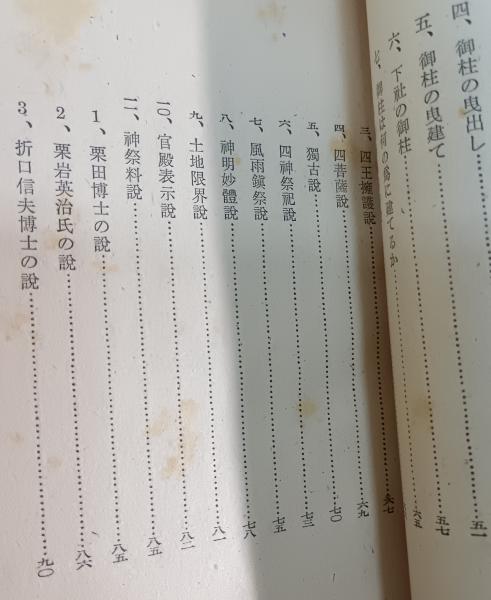 四、御柱の曳出し……五一
五、御柱の曳建て……五七
六、下社の御柱……六五
七、御柱は何の爲に建てるか……六七
三、四王擁護說……六九
四、四菩薩說……七〇
五、獨古說……七三
六、四神祭祀說……七五
七、風雨鎭祭說……七八
八、神明妙體說……八一
九、土地限界說……八二
一〇、官殿表示說……八五
一一、神祭料說……八五
1、栗田博士の說……八五
2、栗岩英治氏の說……八六
3、折口信夫博士の說……九〇